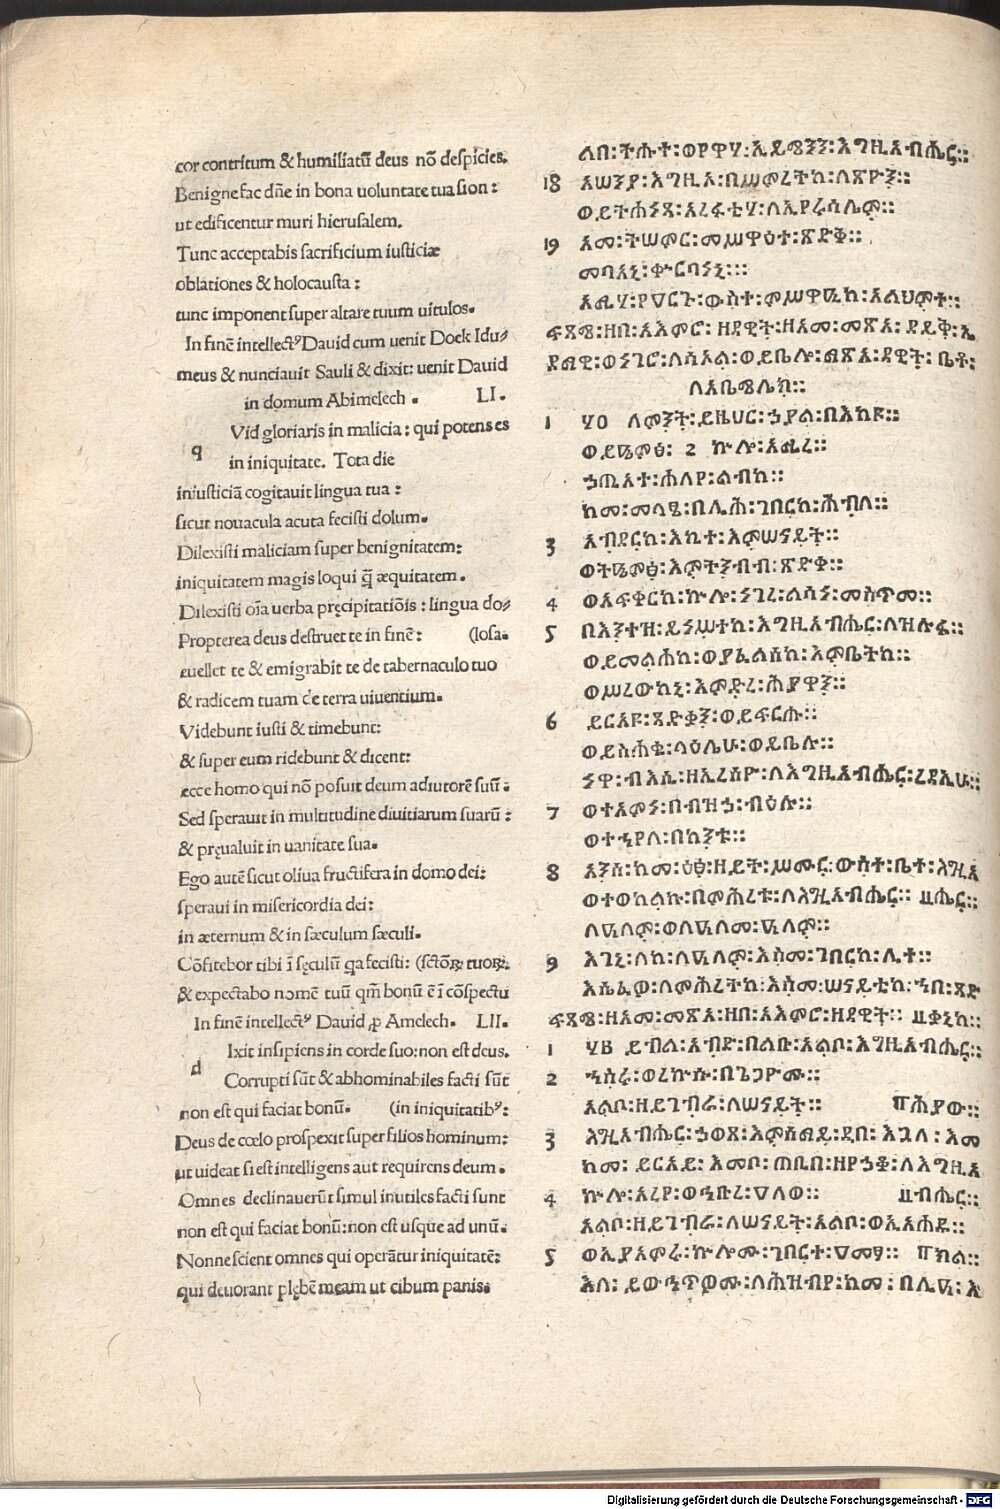 cor contritum & humiliatū deus nō despicies.
Benigne fac dñe in bona uoluntate tua sion :
ut edificentur muri hierusalem.
Tunc acceptabis sacrificium iusticiæ
oblationes & holocausta :
tunc imponent super altare tuum uitulos.
In finē intellectꝰ Dauid cum uenit Doek Idu⸗
meus & nunciauit Sauli & dixit: uenit Dauid
in domum Abimelech . LI.
q Vid gloriaris in malicia : qui potens es
in iniquitate. Tota die
iniusticiā cogitauit lingua tua :
sicut nouacula acuta fecisti dolum.
Dilexisti maliciam super benignitatem:
iniquitatem magis loqui q̄ æquitatem.
Dilexisti oīa uerba pręcipitatiōis : lingua do⸗
Propterea deus destruet te in finē : (losa.
euellet te & emigrabit te de tabernaculo tuo
& radicem tuam de terra uiuentium.
Videbunt iusti & timebunt:
& super eum ridebunt & dicent:
ecce homo qui nō posuit deum adiutorē suū :
Sed sperauit in multitudine diuitiarum suarū :
& pręualuit in uanitate sua.
Ego autē sicut oliua fructifera in domo dei:
speraui in misericordia dei:
in æternum & in sæculum sæculi.
Cōfitebor tibi ī sęculū qa fecisti: (sctōꝝ tuoꝝ.
& expectabo nomē tuū qm̄ bonū ē ī cōspectu
In finē intellectꝰ Dauid ꝓ Amelech. LII.
d Ixit insipiens in corde suo: non est deus.
Corrupti sūt & abhominabiles facti sūt
non est qui faciat bonū. (in iniquitatibꝰ:
Deus de cœlo prospexit super filios hominum:
ut uideat si est intelligens aut requirens deum.
Omnes declinauerūt simul inutiles facti sunt
non est qui faciat bonū: non est usque ad unū.
Nonne scient omnes qui operātur iniquitatē:
qui deuorant plębē meam ut cibum panis.
ልበ፡ትሑተ፡ወየዋሃ፡ኢይሜንን፡እግዚአብሔር፡፡
18 አሠንያ፡እግዚኦ፡በሥምረትከ፡ለጽዮን፡፡
ወይትሐነጻ፡አረፋቲሃ፡ለኢየሩሳሌም፡፡
19 አመ፡ትሠምር፡መሥዋዕተ፡ጽድቅ፡፡
መባእኒ፡ቍርባነኒ፡፡፡
አሜሃ፡የዐርጉ፡ውስተ፡ምሥዋዒከ፡አልህምተ፡፡
ፍጻሜ፡ዘበ፡አእምሮ፡ዘዳዊት፡ዘአመ፡መጽአ፡ዶይቅ፡ኢ
ዶማዊ፡ወነገሮ፡ለሳኦል፡ወይቤሎ፡መጽአ፡ዳዊት፡ቤቶ፡
ለአቤሜሌክ፡፡
1 ለምንት፡ይዜሀር፡ኃያል፡በእከዩ፡፡
ወይዔምፅ፡ 2 ኵሎ፡አሚረ፡፡
ኃጢአተ፡ሐለየ፡ልብከ፡፡
ከመ፡መላፄ፡በሊሕ፡ገበርከ፡ሕብለ፡፡
3 አብደርከ፡እኪተ፡እምሠናይት፡፡
ወትዔምፅ፡እምትንብብ፡ጽድቀ፡፡
4 ወአፍቀርከ፡ኵሎ፡ነገረ፡ልሳነ፡መስጥመ፡፡
5 በእንተዝ፡ይነሥተከ፡እግዚአብሔር፡ለዝሉፉ፡፡
ወይመልሕከ፡ወያፈልሰከ፡እምቤትከ፡፡
ወሥረውከኒ፡እምድረ፡ሕያዋን፡፡
6 ይርአዩ፡ጻድቃን፡ወይፍርሁ፡፡
ወይስሕቁ፡ላዕሌሁ፡ወይቤሉ፡፡
ነዋ፡ብእሲ፡ዘኢረሰዮ፡ለእግዚአብሔር፡ረዳኢሁ፡፡
7 ወተአመነ፡በብዝኃ፡ብዕሉ፡፡
ወተኀየለ፡በከንቱ፡፡
8 አንሰ፡ከመ፡ዕፅ፡ዘይት፡ሥሙር፡ውስተ፡ቤተ፡እግዚአ
ወተወከልኩ፡በምሕረቱ፡ለእግዚአብሔር፡፡ ብሔር፡፡
ለዓለም፡ወለዓለመ፡ዓለም፡፡
9 እገኒ፡ለከ፡ለዓለም፡እስመ፡ገበርከ፡ሊተ፡፡
እሴፈው፡ለምሕረትከ፡እስመ፡ሠናይቲከ፡ኀበ፡ጻድ
ፍጻሜ፡ዘአመ፡መጽአ፡ዘበ፡አእምሮ፡ዘዳዊት፡፡ ቃኒከ፡፡
1 ይብል፡አብድ፡በልቡ፡አልቦ፡እግዚአብሔር፡፡
2 ኀስሩ፡ወረኵሱ፡በጌጋዮሙ፡፡
አልቦ፡ዘይገብራ፡ለሠናይት፡፡
3 እግዚአብሔር፡ኃወጸ፡እምሰማይ፡ዲበ፡እጓለ፡እመ
ከመ፡ይርአይ፡እመቦ፡ጠቢበ፡ዘየኃሦ፡ለእግዚአ
4 ኵሎ፡አረየ፡ወኀቡረ፡ዐለወ፡፡ ብሔር፡፡
አልቦ፡ዘይገብራ፡ለሠናይት፡አልቦ፡ወኢአሐዱ፡፡
5 ወኢያአምሩ፡ኵሎሙ፡ገበርተ፡ዐመፃ፡፡
እለ፡ይውኅጥዎሙ፡ለሕዝብየ፡ከመ፡በሊዓ፡እ
Digitalisierung gefördert durch die Deutsche Forschungsgemeinschaft - DFG